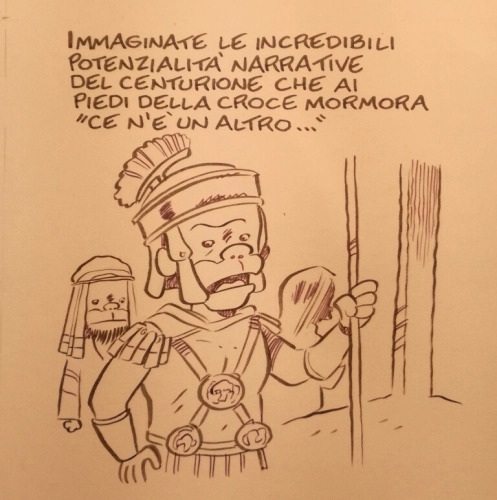 IMMAGINATE LE INCREDIBILI
POTENZIALITA' NARRATIVE
DEL CENTURIONE CHE AI
PIEDI DELLA CROCE MORMORA
"CE N'E' UN ALTRO..."